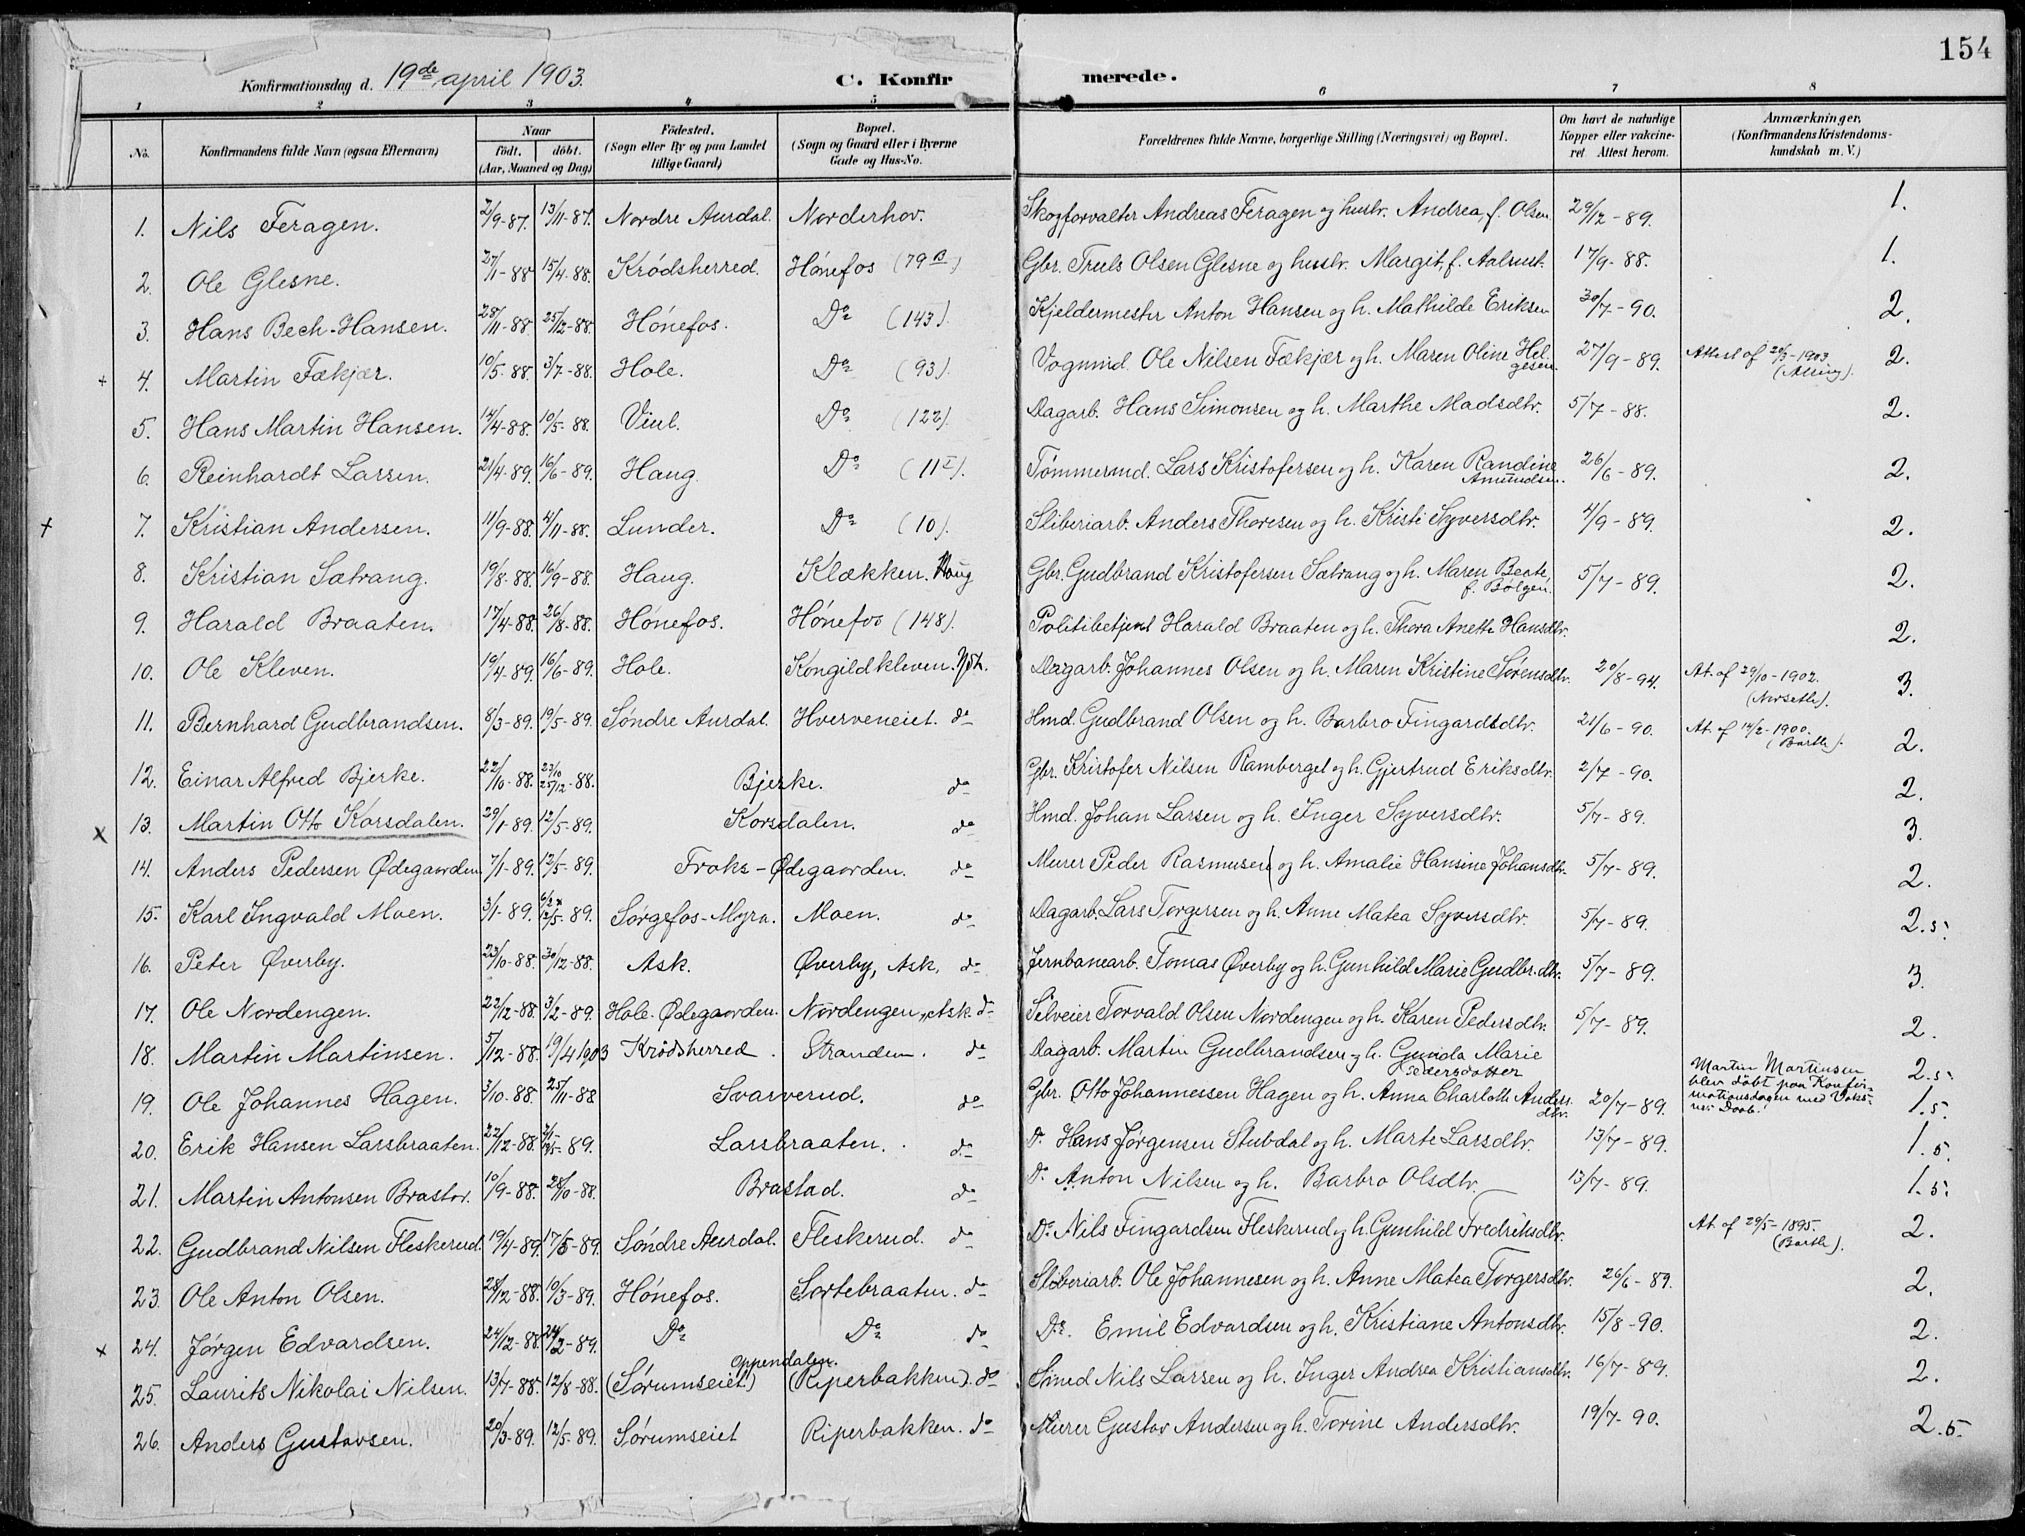 154
Konfirmationsdag d. 19de april 1903. C. Konfirmerede.
1 2 3 4 5 6 7 8
No. Konfirmandens fulde Navn (ogsaa Efternavn) Naar födt. döbt. (Aar, Maaned og Dag) Födested. (Sogn eller By og paa Landet tillige Gaard) Bopæl. (Sogn og Gaard eller i Byerne Gade og Hus-No. Forældrenes fulde Navne, borgerlige Stilling (Næringsvei) og Bopæl. Om havt de naturlige Kopper eller vakcineret Attest herom. Anmærkninger, (Konfirmandens Kristendomskundskab m. V.)
1. Nils Feragen. 2/9-87. 13/11-87. Nordre Aurdal. Norderhov. Skogforvalter Andreas Feragen og hustr. Andrea, f. Olsen. 29/12-89. 1.
2. Ole Glesne. 27/1-88 15/4-88. Krödsherred. Hönefos (79 B) Gbr. Truls Olsen Glesne og hustr. Margit, f. Aalrust. 17/9-88. 1.
3. Hans Bech-Hansen. 28/11-88. 25/12-88. Hönefos. Do (143). Kjeldermester Anton Hansen og h. Mathilde Eriksen 30/7-90. 2.
+ 4. Martin Fækjær. 10/5-88. 3/7-88. Hole. Do (93). Vognmd. Ole Nilsen Fækjær og h. Maren Oline Helgesen. 27/9-89. Attest af 20/3-1903 2.
5. Hans Martin Hansen. 14/4-88. 10/5-88. Viul. Do (122). Dagarb. Hans Simonsen og h. Marthe Madsdtr. 5/7-88. 2.
6. Reinhardt Larsen. 21/4-89. 16/6-89. Haug. Do (11 I). Tömmermd. Lars Kristofersen og h. Karen Randine Amundsen. 26/6-89. 2.
+ 7. Kristian Andersen. 11/9-88. 4/11-88. Lunder. Do (10). Sliberiarb. Anders Thoresen og h. Kristi Syversdtr. 4/9-89. 2.
8. Kristian Sætrang. 19/8-88. 16/9-88. Haug. Klækken. Haug Gbr. Gudbrand Kristofersen Sætrang og h. Maren Beate, f. Bölgen. 5/7-89. 2.
9. Harald Braaten. 17/4-88. 26/8-88. Hönefos. Hönefos (148). Politibetjent Harald Braaten og h. Thora Anette Hansdtr. 2.
10. Ole Kleven. 19/4-89. 16/6-89. Hole. Kongildkleven. Dagarb. Johannes Olsen og h. Maren Kristine Sörensdtr. 20/8-94. At. af 29/10-1902. 3.
11. Bernhard Gudbrandsen. 8/3-89. 19/5-89. Söndre Aurdal. Hverveneiet. do Hmd. Gudbrand Olsen og h. Barbro Fingardtdtr. 21/6-90. At. af 14/2-1900. (Barth). 2.
12. Einar Alfred Bjerke. 22/10-88. 23/10 25/12-88. Bjerke. do Gbr. Kristofer Nilsen Ramberget og h. Gjertrud Eriksdtr. 2/7-90. 2.
x 13. Martin Otto Korsdalen. 29/1-89. 12/5-89. Korsdalen. do Hmd. Johan Larsen og h. Inger Syversdtr. 5/7-89. 3.
14. Anders Pedersen Ødegaarden. 7/1-89. 12/5-89. Froks-Ødegaarden. do Murer Peder Rasmusen og h. Amalie Hansine Johansdtr. 5/7-89. 2.
15. Karl Ingvald Moen. 3/1-89. 12/5-89. Sörgefos-Myra. Moen. do Dagarb. Lars Torgersen og h. Anne Matea Syversdtr. 5/7-89. 2.5.
16. Peter Øverby. 23/10-88. 30/12-88. Ask. Øverby, Ask, do Jernbanearb. Tomas Øverby og h. Gunhild Marie Gudbr.dtr. 5/7-89. 3.
17. Ole Nordengen. 22/12-88. 3/2-89. Hole. Ødegaarden. Nordengen, Ask. do Selveier Torvald Olsen Nordengen og h. Karen Pedersdtr. 5/7-89. 2.
18. Martin Martinsen. 5/12-88. 19/4 1903 Krödsherred. Stranden. do Dagarb. Martin Gudbrandsen og h. Gunda Marie Pedersdatter Martin Martinsen blev döbt paa Konfirmationsdagen med Voksnes Daab! 2.5.
19. Ole Johannes Hagen. 3/10-88. 25/11-88 Svarverud. do Gbr. Otto Johannessen Hagen og h. Anna Charlotte Andersdtr. 20/7-89. 1.5.
20. Erik Hansen Larsbraaten. 22/12-88. Larsbraaten. do Do Hans Jörgensen Stubdal og h. Marte Larsdtr. 13/7-89. 1.5.
21. Martin Antonsen Brastad. 10/9-88. 28/10-88. Brastad. do Do Anton Nilsen og h. Barbro Olsdtr. 13/7-89. 1.5.
22. Gudbrand Nilsen Fleskerud. 19/4-89. 17/5-89. Söndre Aurdal. Fleskerud. do Do Nils Fingardsen Fleskerud og h. Gunhild Fredriksdtr. At. af 29/5-1895. (Barth). 2.
23. Ole Anton Olsen. 28/12-88. 10/3-89. Hönefos. Sortebraaten. do Sliberiarb. Ole Johannesen og h. Anne Matea Torgersdtr. 26/6-89. 2.
x 24. Jörgen Edvardsen. 24/12-88. 24/2-89. Do Do do Do. Emil Edvardsen og h. Kristiane Antonsdtr. 15/8-90. 2.
25. Laurits Nikolai Nilsen. 13/7-88. 12/8-88. (Sörumseiet.) Oppendalen. (Riperbakken). do Smed Nils Larsen og h. Inger Andrea Kristiansdtr. 16/7-89. 2.
26. Anders Gustavsen. 20/3-89. 12/5-89. Sörumseiet Riperbakken. do Murer Gustav Andersen og h. Torine Andersdtr. 19/7-90. 2.5.